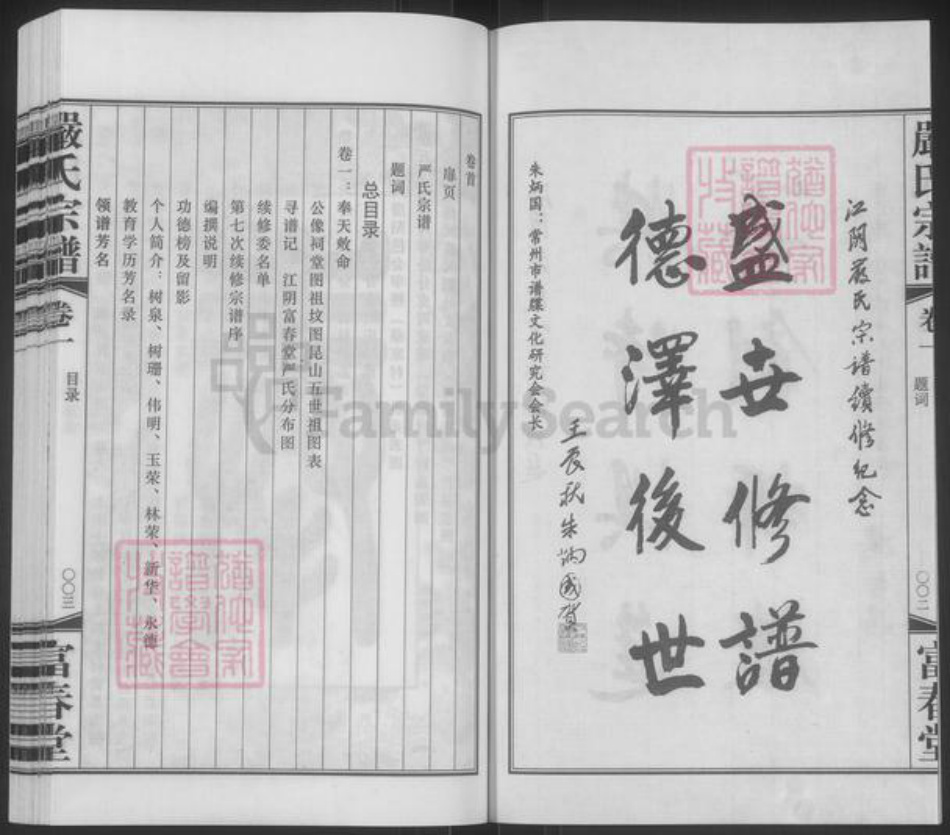 江阴嚴氏宗譜續修纪念
盛世修譜
德澤後世
壬辰秋朱炳國賀
朱炳国：常州市谱牒文化研究会会长
嚴氏宗譜
卷一
题词
〇〇二
富春堂
卷首
扉页
严氏宗谱
题词
总目录
卷一：奉天敕命
公像祠堂图祖坟图昆山五世祖图表
寻谱记　江阴富春堂严氏分布图
续修委名单
第七次续修宗谱序
编撰说明
功德榜及留影
个人简介：树泉、树珊、伟明、玉荣、林荣、新华、永德
教育学历芳名录
领谱芳名
嚴氏宗譜
卷一
目录
〇〇三
富春堂
FamilySearch